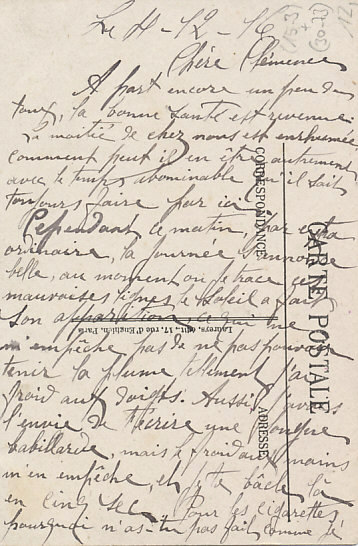 Le 4-12-16
Chère Clémence
A part encore un peu de
toux, la bonne santé est revenue
½ moitié de chez nous est enrhumée,
comment peut il en être autrement
avec le temps abominable qu'il fait
toujours faire par ici
Cependant ce matin, par extra
ordinaire, la journée s'annonce
belle, au moment où je trace ces
mauvaises lignes, le soleil a fait
son apparition, ce qui ne
m'empêche pas de ne pas pouvoir
tenir la plume tellement j'ai
froid aux doigts. Aussi j'avais
l'envie de t'écrire une longue
babillarde, mais le froid aux mains
m'en empêche, et je te bâcle là
en cinq sec. Pour les cigarettes,
pourquoi n'as-tu pas fait comme je
CARTE POSTALE
CORRESPONDANCE
ADRESSE
Laureys, édit., 17, rue d'Enghien, Paris
(30-23)